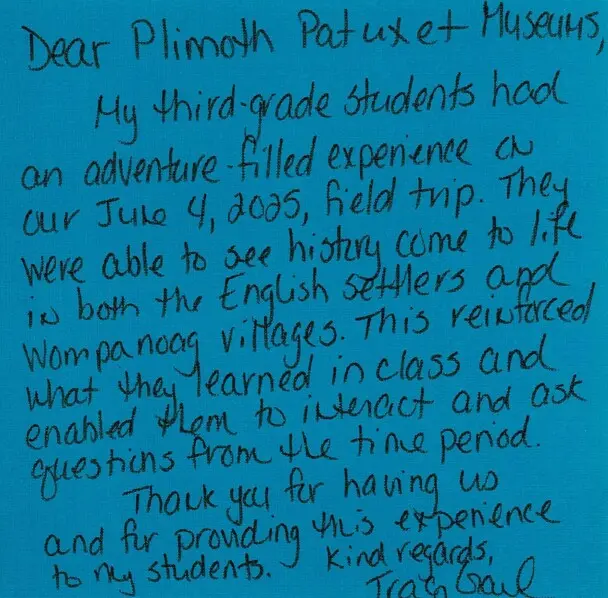 Dear Plimoth Patuxet Museums,
My third-grade students had
an adventure-filled experience on
our June 4, 2025, field trip. They
were able to see history come to life
in both the English settlers and
Wompanoag villages. This reinforced
what they learned in class and
enabled them to interact and ask
questions from the time period.
Thank you for having us
and for providing this experience
to my students. Kind regards,